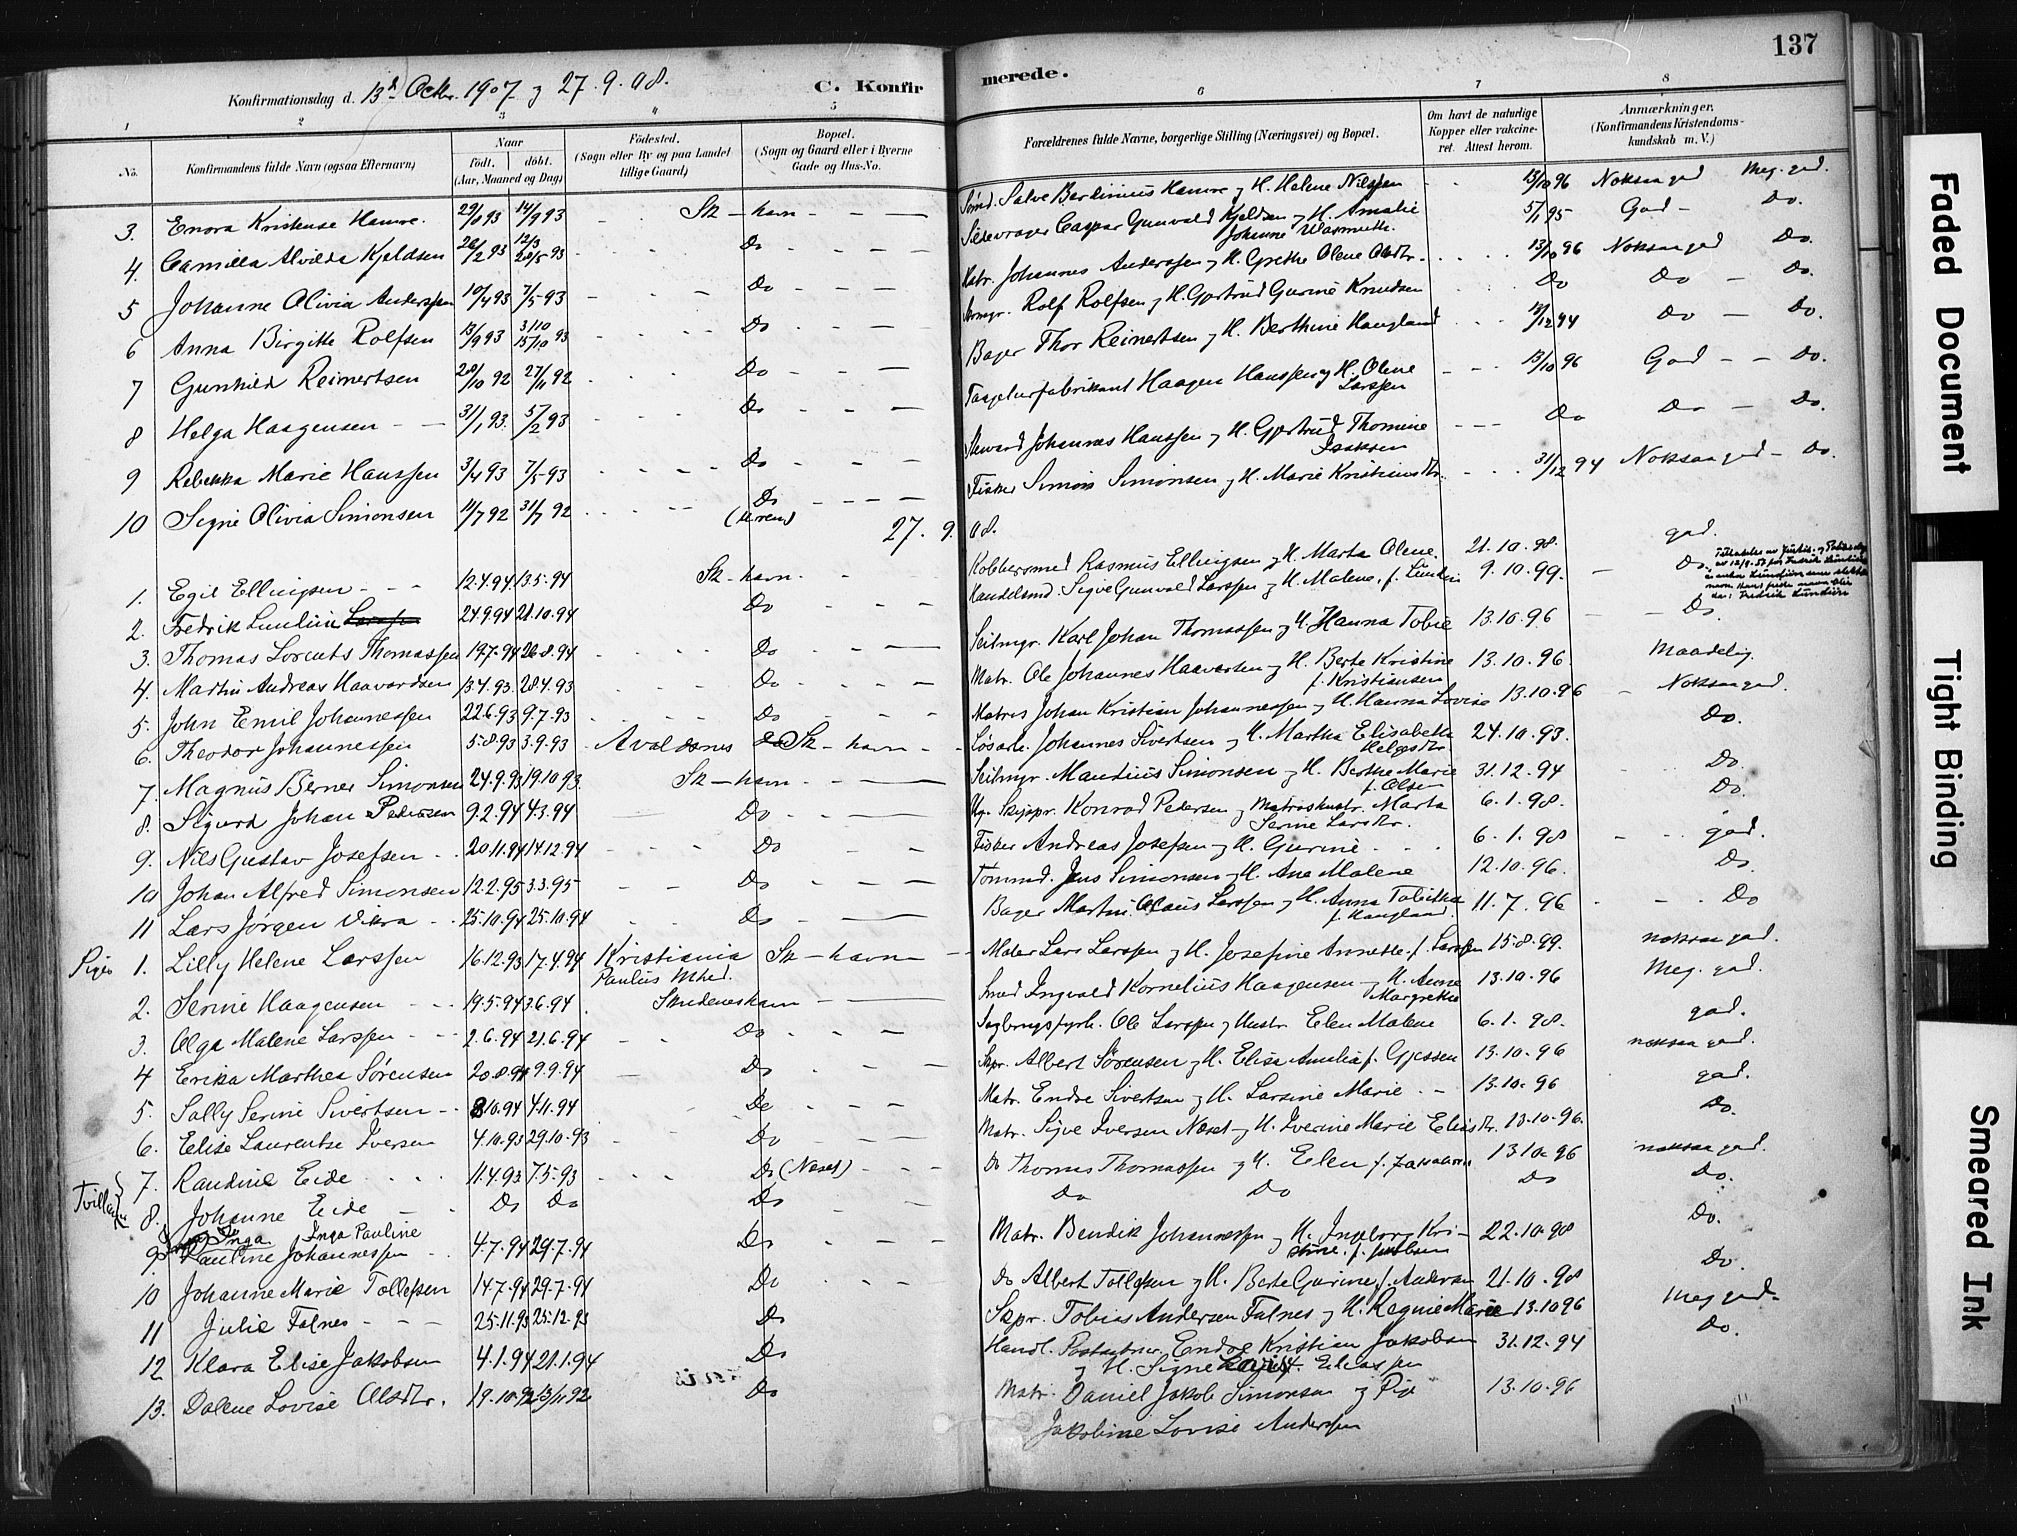 137
Konfirmationsdag d. 13d Octbr. 1907 og 27.9.08. C. Konfirmerede.
1 2 3 4 5 6 7 8
No. Konfirmandens fulde Navn (ogsaa Efternavn) Naar født. døbt. (Aar, Maaned og Dag) Fødested. (Sogn eller By og paa Landet tillige Gaard) Bopæl. (Sogn og Gaard eller i Byerne Gade og Hus-No. Forældrenes fulde Navne, borgerlige Stilling (Næringsvei) og Bopæl. Om havt de naturlige Kopper eller vaccineret. Attest herom. Anmærkninger. (Konfirmandens Kristendomskundskab m. V.)
3. Enora Kristense Hamre. 14/9 93 Sk-havn Salve Berdinius Hamre og H. Helene Nilssen 13/10 96 Noksaa god Meg. god.
4. Camilla Alvilde Kjeldsen 26/2 93 12/3 20/5 93 Do Sildevrager Caspar Gunvald Kjeldsen og H. Amalie Johanne Warmuth. 5/1 95 God - Do.
5 Johanne Olivia Anderssen 10/4 93 7/5 93 Do Matr. Johannes Anderssen og H. Grethe Olene Olsdtr. 13/10 96 Noksaa god Do.
6 Anna Birgitte Rolfsen 13/9 93 3/10 15/10 93 Do Rolf Rolfsen og H. Gjertrud Gurine Knudsen Do Do - Do.
7 Gunhild Reimertsen 28/10 92 27/11 92 Do Bager Thor Reimertsen og H. Berthine Haugland 31/12 94 Do - Do.
8 Helga Haagensen 31/1 93. 5/2 93 Do Haagen Hanssen og H. Olene Larssen 13/10 96 God - - Do.
9 Rebekka Marie Hanssen 3/4 93 7/5 93 Do Johannes Hanssen og H. Gjertrud Thomine Isaksen Do Do - Do.
10 Signe Olivia Simonsen 11/7 92 31/7 92 Do Fisker Simon Simonsen og H. Marie Kristiansdtr. 31/12 94 Noksaa god - Do.
27.9.08.
1. Egil Ellingsen 12.4.94 13.5.94 Sk-havn Kobbersmed Rasmus Ellingsen og H. Marta Olene. 21.10.98. god.
2. Fredrik Lundein Larssen 24.9.94 21.10.94 Do Handelsmd. Sigve Gunvald Larssen og H. Malene, f. Lundein 9.10.99. Do.
3. Thomas Lorents Thomassen 19.7.94 26.8.94 Do Seilmgr. Karl Johan Thomassen og H. Hanna Tobie 13.10.96 Do
4. Martin Andreas Haavardsen 13.4.93. 28.4.93 Do Matr. Ole Johannes Haavartsen og H. Berte Kristine f. Kristiansen 13.10.96. Maadelig.
5. John Emil Johannessen 22.6.93 9.7.93 Do Matros Johan Kristian Johannessen og H. Hanna Lovise 13.10.96 Noksaa god.
6. Theodor Johannessen 5.8.93 3.9.93 Avaldsnes Sk-havn Løsarb. Johannes Sivertsen og H. Martha Elisabeth Helgesdtr 24.10.93. Do.
7. Magnus Berner Simonsen 24.9.93 19.10.93. Sk-havn Seilmgr. Mandius Simonsen og H. Berthe Marie f. Olsen 31.12.94 Do.
8. Sigurd Johan Pedersen 9.2.94 4.3.94 Do Ug. Skipspr. Konrad Pedersen og Matroshustr. Marta Serine Larsdtr. 6.1.98. Do.
9. Nils Gustav Josefsen 20.11.94 14.12.94 Do Fisker Andreas Josefsen og H. Gurine 6.1.98 god.
10 Johan Alfred Simonsen 12.2.95 3.3.95 Do Tømmd. Jens Simonsen og H. Ane Malene 12.10.96. Do.
11 Lars Jørgen Vikra 25.10.94 25.10.94 Do Bager Martin Claus Larssen og H. Anna Tabitha f. Haugland 11.7.96 Do
Piger 1. Lilly Helene Larssen 16.12.93 17.4.94 Kristiania Paulus Mhed. Sk-havn Maler Lars Larssen og H. Josefine Annette f. Larssen 15.8.99. noksaa god.
2. Serine Haagensen 19.5.94 3.6.94 Skudeneshavn Smed Ingvald Kornelius Haagensen og H. Anne Margrethe 13.10.96 Meg. god.
3. Olga Malene Larssen 2.6.94 21.6.94 Do Ole Larssen og Hustr. Elen Malene 6.1.98. god.
4 Erika Marthea Sørensen 20.8.94 9.9.94 Do Skpr. Albert Sørensen og H. Elisa Amalia f. Gjessen 13.10.96 noksaa god.
5. Sally Serine Sivertsen 8.10.94 4.11.94 Do Matr. Endre Sivertsen og H. Larsine Marie 13.10.96 god.
6. Elise Laurentse Iversen 4.10.93 29.10.93 Do Matr. Sigve Iversen Næset og H. Iverine Marie Eliasdtr. 13.10.96. Do.
Tvillinger 7. Randine Eide 11.4.93 7.5.93 Do (Næset) Do Thomas Thomassen og H. Elen f. 13.10.96 noksaa god.
8. Johanne Eide Do Do Do Do Do Do Do.
9. Inga Pauline Johannessen Inga Pauline 4.7.94 29.7.94 Do Matr. Bendik Johannessen og H. Ingeborg Kristine. 22.10.98 Do.
10 Johanne Marie Tollefsen 14.7.94 29.7.94 Do Do Albert Tollefsen og H. Berte Gurine f. Andersen 21.10.98 Do.
11 Julie Falnes 25.11.93 25.12.93 Do Skpr. Tobias Andersen Falnes og H. Regine Marie 13.10 96 Meg god.
12 Klara Elise Jakobsen 4.1.94 21.1.94 Do Handl. Endre Kristian Jakobsen og H. Signe Lovise f. Eliassen 31.12.94 Do.
13. Dalene Lovise Olsdtr. 19.10.92 13/11 92 Do Matr. Daniel Jakob Simonsen og Pige Jakobine Lovise Anderssen 13.10.96
Faded Document
Tight Binding
Smeared Ink